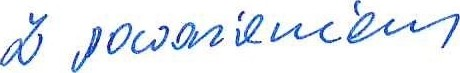 Z poważaniem